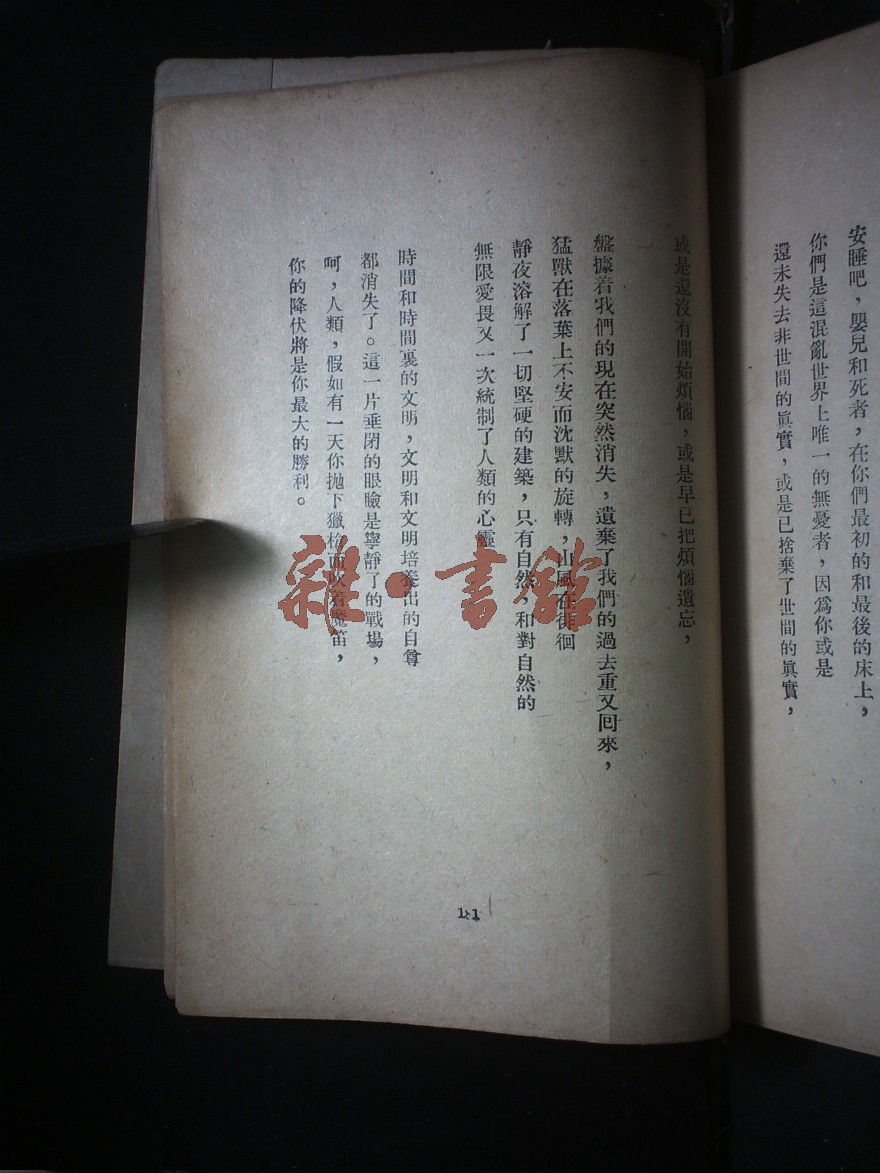 安睡吧，嬰兒和死者，在你們最初的和最後的床上，
你們是這混亂世界上唯一的無憂者，因爲你或是
還未失去非世間的眞實，或是已捨棄了世間的眞實，
或是還沒有開始煩惱，或是早已把煩惱遺忘，
盤據着我們的現在突然消失，遺棄了我們的過去重又囘來，
猛獸在落葉上不安而沈默的旋轉，山風在徘徊
靜夜溶解了一切堅硬的建築，只有自然，和對自然的
無限愛畏又一次統制了人類的心靈
時間和時間裏的文明，文明和文明培養出的自尊
都消失了。這一片垂閉的眼瞼是寧靜了的戰場，
呵，人類，假如有一天你拋下獵槍而吹着魔笛，
你的降伏將是你最大的勝利。
雜·書館